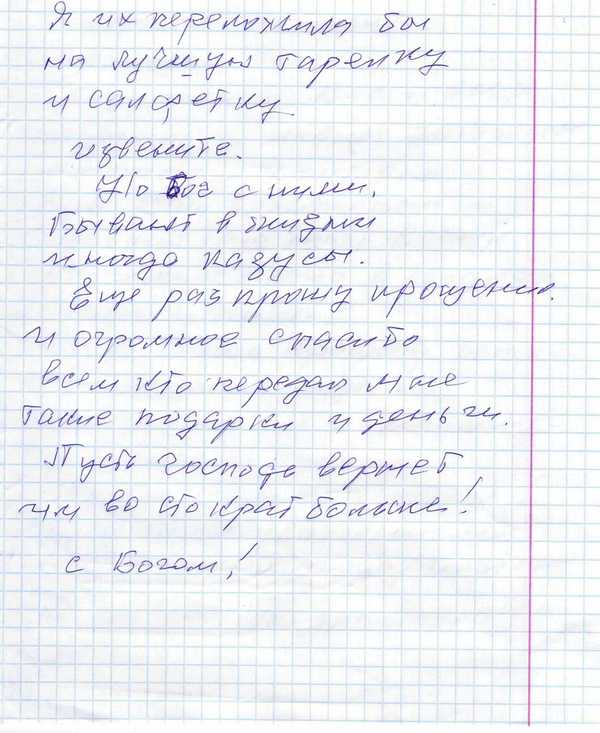 Я их переложила бы
на лучшую тарелку
и салфетку
извените.
Но Бог с ними.
Бывают в жизни
иногда казусы.
Еще раз прошу прощения.
и огромное спасибо
всем кто передал мне
такие подарки и деньги.
Пусть господь вернет
им во сто крат больше!
с Богом!